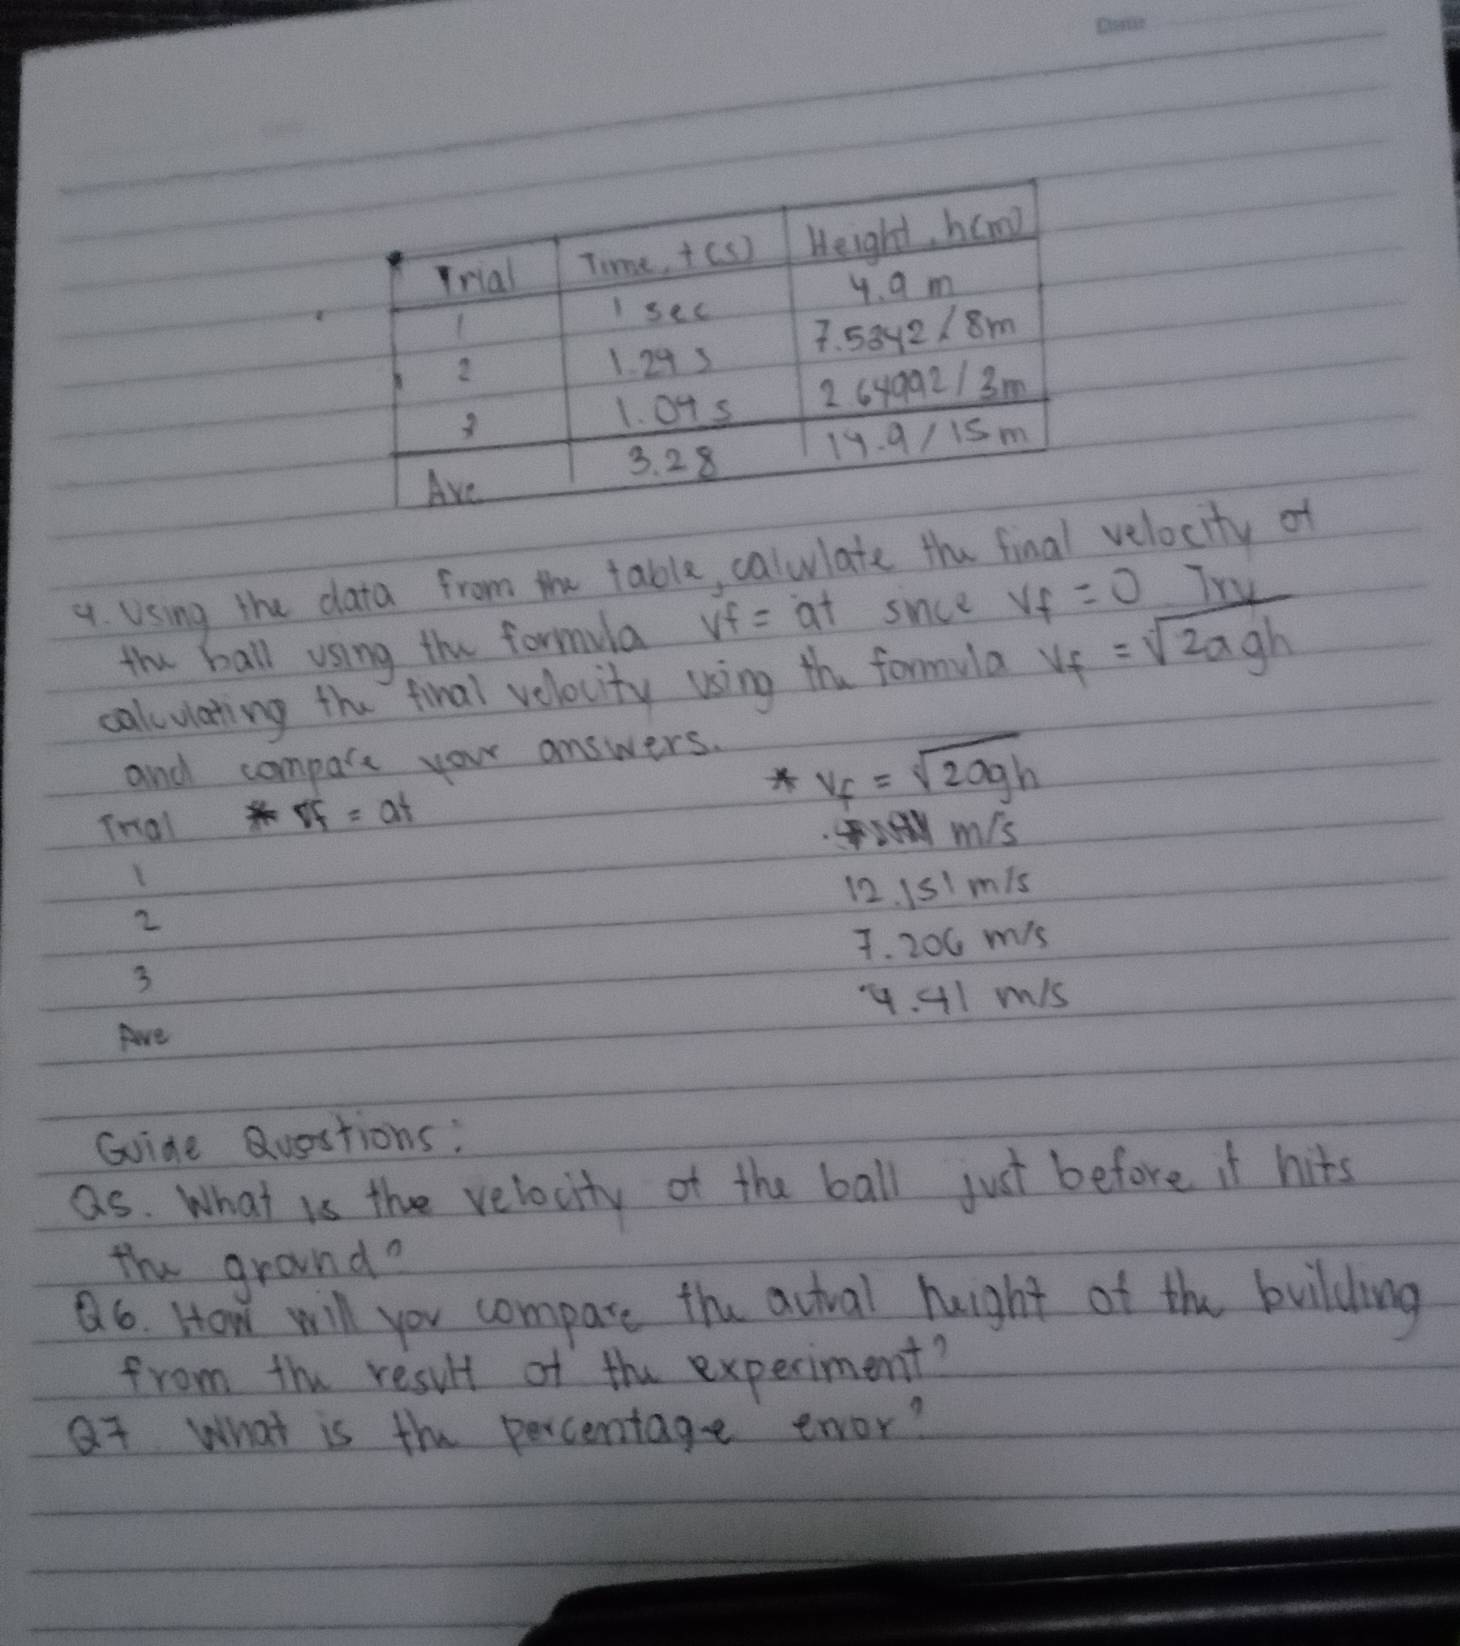 Date
Trial Time, t(s) Height, h(m)
1 1 sec 4.9 m
2 1.24 s 7.5342 / 8m
3 1.04 s 2 64992 / 3m
Ave 3.28 14.9 / 15 m
4. Using the data from the table, calculate the final velocity of
the ball using the formula Vf = at since Vf = 0 Try
calculating the final velocity using the formula Vf = √2agh
and compare your answers.
Trial * Vf = at * Vf = √2agh
1 m/s
2 12.151 m/s
3 7.206 m/s
Ave 4.41 m/s
Guide Questions:
Q5. What is the velocity of the ball just before it hits
the ground?
Q6. How will you compare the actual height of the building
from the result of the experiment?
Q7 What is the percentage error?